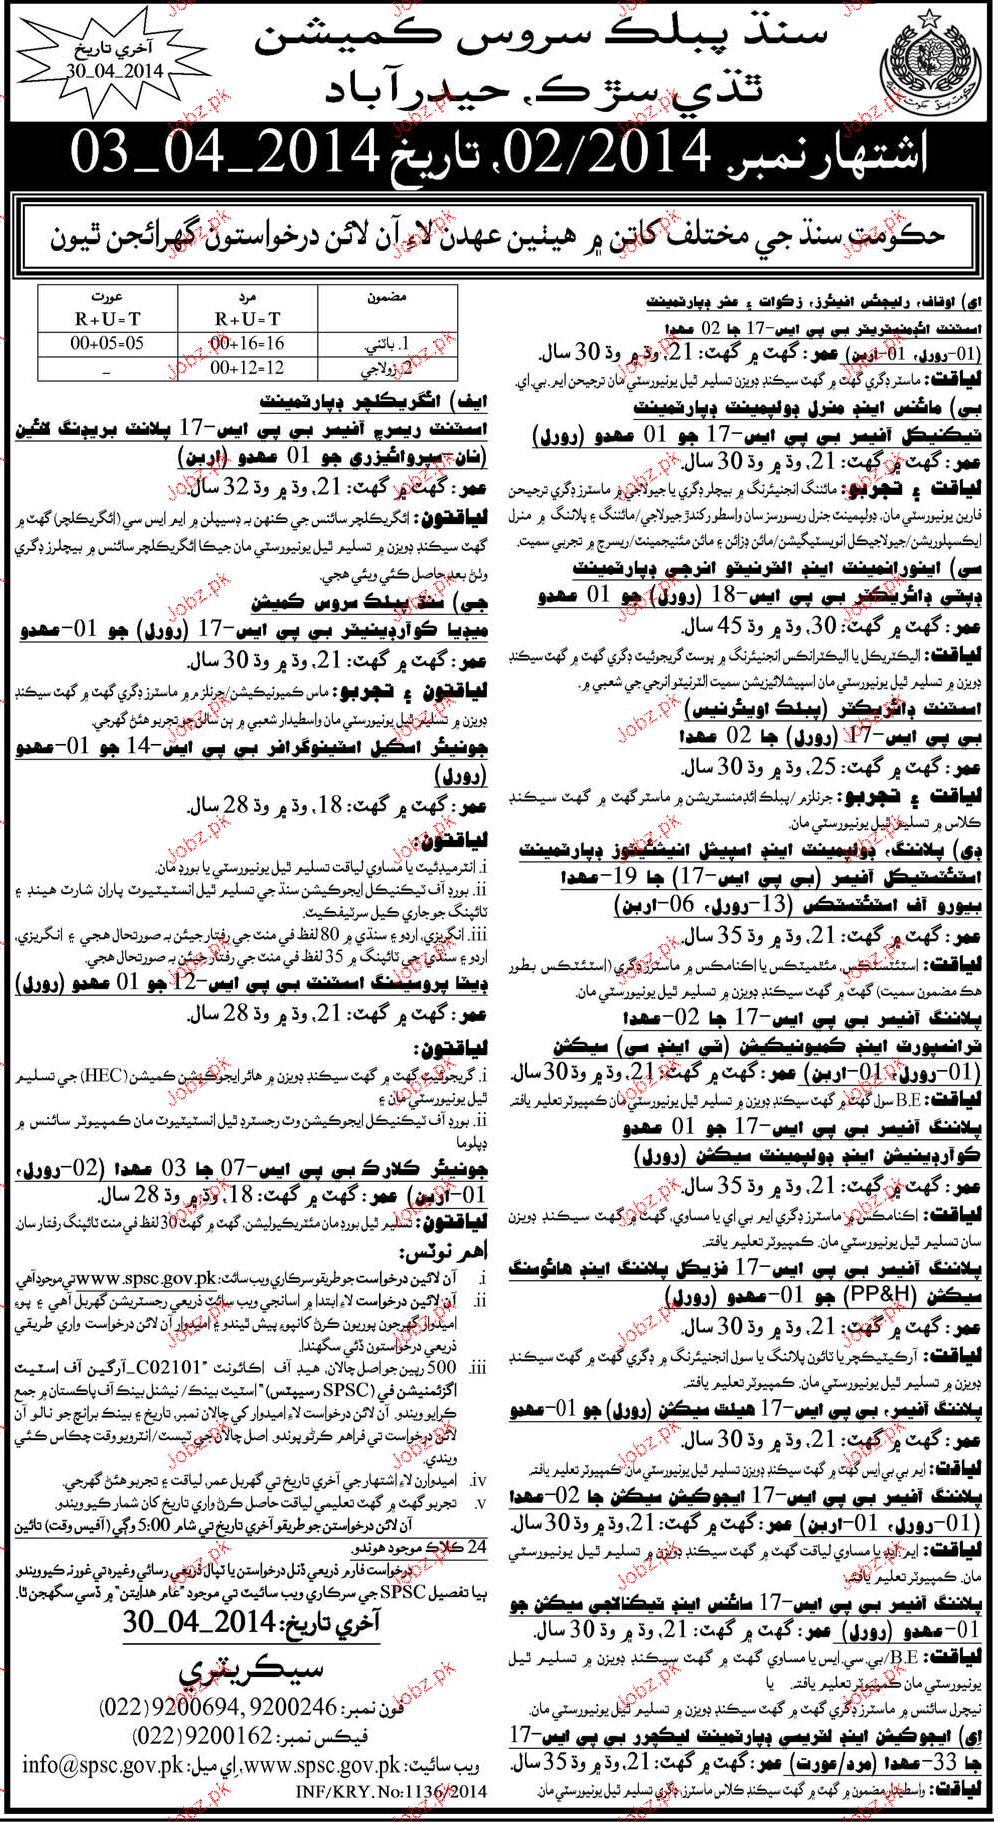 سنڌ پبلڪ سروس ڪميشن
ٿڌي سڙڪ، حيدرآباد
آخري تاريخ
30_04_2014
اشتهار نمبر 02/2014، تاريخ 03_04_2014
حڪومت سنڌ جي مختلف کاتن ۾ هيٺين عهدن لاءِ آن لائن درخواستون گهرائجن ٿيون
اي) اوقاف، رليجئس افيئرز، زڪوات ۽ عشر ڊپارٽمينٽ
اسسٽنٽ ائڊمنسٽريٽر بي پي ايس-17 جا 02 عهدا
(01-رورل، 01-اربن) عمر: گهٽ ۾ گهٽ: 21، وڌ ۾ وڌ 30 سال.
لياقت: ماسٽر ڊگري گهٽ ۾ گهٽ سيڪنڊ ڊويزن تسليم ٿيل يونيورسٽي مان ترجيحن ايم.بي.اي.
بي) مائنس اينڊ منرل ڊولپمينٽ ڊپارٽمينٽ
ٽيڪنيڪل آفيسر بي پي ايس-17 جو 01 عهدو (رورل)
عمر: گهٽ ۾ گهٽ: 21، وڌ ۾ وڌ 30 سال.
لياقت ۽ تجربو: مائننگ انجنيئرنگ ۾ بيچلر ڊگري يا جيولاجي ۾ ماسٽرز ڊگري ترجيحن
فارين يونيورسٽي مان، ڊولپمينٽ جنرل ريسورسز سان واسطو رکندڙ جيولاجي/مائننگ ۽ پلاننگ ۾ منرل
ايڪسپلوريشن/جيولاجيڪل انويسٽيگيشن/مائن ڊزائن ۽ مائن مئنيجمينٽ/ريسرچ ۾ تجربي سميت.
سي) اينورانمينٽ اينڊ الٽرنيٽو انرجي ڊپارٽمينٽ
ڊپٽي ڊائريڪٽر بي پي ايس-18 (رورل) جو 01 عهدو
عمر: گهٽ ۾ گهٽ: 30، وڌ ۾ وڌ 45 سال.
لياقت: اليڪٽريڪل يا اليڪٽرانڪس انجنيئرنگ ۾ پوسٽ گريجوئيٽ ڊگري گهٽ ۾ گهٽ سيڪنڊ
ڊويزن ۾ تسليم ٿيل يونيورسٽي مان اسپيشلائيزيشن سميت الٽرنيٽو انرجي جي شعبي ۾.
اسسٽنٽ ڊائريڪٽر (پبلڪ اويئرنيس)
بي پي ايس-17 (رورل) جا 02 عهدا
عمر: گهٽ ۾ گهٽ: 25، وڌ ۾ وڌ 30 سال.
لياقت ۽ تجربو: جرنلزم/پبلڪ ائڊمنسٽريشن ۾ ماسٽر گهٽ ۾ گهٽ سيڪنڊ
ڪلاس ۾ تسليم ٿيل يونيورسٽي مان.
ڊي) پلاننگ، ڊولپمينٽ اينڊ اسپيشل انيشئيٽوز ڊپارٽمينٽ
اسٽئٽسٽيڪل آفيسر (بي پي ايس-17) جا 19-عهدا
بيورو آف اسٽئٽسٽڪس (13-رورل، 06-اربن)
عمر: گهٽ ۾ گهٽ: 21، وڌ ۾ وڌ 35 سال.
لياقت: اسٽئٽسٽڪس، مئٿميٽڪس يا اڪنامڪس ۾ ماسٽرز ڊگري (اسٽئٽسٽڪس بطور
هڪ مضمون سميت) گهٽ ۾ گهٽ سيڪنڊ ڊويزن ۾ تسليم ٿيل يونيورسٽي مان.
پلاننگ آفيسر بي پي ايس-17 جا 02-عهدا
ٽرانسپورٽ اينڊ ڪميونيڪيشن (ٽي اينڊ سي) سيڪشن
(01-رورل، 01-اربن) عمر: گهٽ ۾ گهٽ: 21، وڌ ۾ وڌ 30 سال.
لياقت: B.E سول گهٽ ۾ گهٽ سيڪنڊ ڊويزن ۾ تسليم ٿيل يونيورسٽي مان ڪمپيوٽر تعليم يافته.
پلاننگ آفيسر بي پي ايس-17 جو 01 عهدو
ڪوآرڊينيشن اينڊ ڊولپمينٽ سيڪشن (رورل)
عمر: گهٽ ۾ گهٽ: 21، وڌ ۾ وڌ 35 سال.
لياقت: اڪنامڪس ۾ ماسٽرز ڊگري ايم بي اي يا مساوي، گهٽ ۾ گهٽ سيڪنڊ ڊويزن
سان تسليم ٿيل يونيورسٽي مان. ڪمپيوٽر تعليم يافته.
پلاننگ آفيسر بي پي ايس-17 فزيڪل پلاننگ اينڊ هائوسنگ
سيڪشن (PP&H) جو 01-عهدو (رورل)
عمر: گهٽ ۾ گهٽ: 21، وڌ ۾ وڌ 30 سال.
لياقت: آرڪيٽيڪچر يا ٽائون پلاننگ يا سول انجنيئرنگ ۾ ڊگري گهٽ ۾ گهٽ سيڪنڊ
ڊويزن ۾ تسليم ٿيل يونيورسٽي مان. ڪمپيوٽر تعليم يافته.
پلاننگ آفيسر، بي پي ايس-17 هيلٿ سيڪشن (رورل) جو 01-عهدو
عمر: گهٽ ۾ گهٽ: 21، وڌ ۾ وڌ 30 سال.
لياقت: ايم بي بي ايس گهٽ ۾ گهٽ سيڪنڊ ڊويزن ۾ تسليم ٿيل يونيورسٽي مان. ڪمپيوٽر تعليم يافته.
پلاننگ آفيسر بي پي ايس-17 ايجوڪيشن سيڪشن جا 02-عهدا
(01-رورل، 01-اربن) عمر: گهٽ ۾ گهٽ: 21، وڌ ۾ وڌ 30 سال.
لياقت: ايم.ايڊ يا مساوي لياقت گهٽ ۾ گهٽ سيڪنڊ ڊويزن ۾ تسليم ٿيل يونيورسٽي
مان. ڪمپيوٽر تعليم يافته.
پلاننگ آفيسر بي پي ايس-17 سائنس اينڊ ٽيڪنالاجي سيڪشن جو
01-عهدو (رورل) عمر: گهٽ ۾ گهٽ: 21، وڌ ۾ وڌ 30 سال.
لياقت: B.E/بي.سي.ايس يا مساوي گهٽ ۾ گهٽ سيڪنڊ ڊويزن ۾ تسليم ٿيل
يونيورسٽي مان ڪمپيوٽر تعليم يافته. يا
نيچرل سائنس ۾ ماسٽرز ڊگري گهٽ ۾ گهٽ سيڪنڊ ڊويزن ۾ تسليم ٿيل يونيورسٽي مان.
اِي) ايجوڪيشن اينڊ لٽريسي ڊپارٽمينٽ ليڪچرر بي پي ايس-17
جا 33-عهدا (مرد/عورت) عمر: گهٽ ۾ گهٽ: 21، وڌ ۾ وڌ 35 سال.
لياقت: واسطيدار مضمون ۾ گهٽ ۾ گهٽ سيڪنڊ ڪلاس ماسٽرز ڊگري تسليم ٿيل يونيورسٽي مان.
مضمون مرد عورت
R+U=T R+U=T
1. باٽني. 00+16=16 00+05=05
2. زولاجي 00+12=12 _
ايف) ائگريڪلچر ڊپارٽمينٽ
اسسٽنٽ ريسرچ آفيسر بي پي ايس-17 پلانٽ بريڊنگ لائين
(نان-سپروائيزري جو 01 عهدو (اربن)
عمر: گهٽ ۾ گهٽ: 21، وڌ ۾ وڌ 32 سال.
لياقتون: ائگريڪلچر سائنس جي ڪنهن به ڊسيپلن ۾ ايم ايس سي (ائگريڪلچر) گهٽ ۾
گهٽ سيڪنڊ ڊويزن ۾ تسليم ٿيل يونيورسٽي مان جيڪا ائگريڪلچر سائنس ۾ بيچلرز ڊگري
وٺڻ بعد حاصل ڪئي ويئي هجي.
جي) سنڌ پبلڪ سروس ڪميشن
ميڊيا ڪوآرڊينيٽر بي پي ايس-17 (رورل) جو 01-عهدو
عمر: گهٽ ۾ گهٽ: 21، وڌ ۾ وڌ 30 سال.
لياقتون ۽ تجربو: ماس ڪميونيڪيشن/جرنلزم ۾ ماسٽرز ڊگري گهٽ ۾ گهٽ سيڪنڊ
ڊويزن ۾ تسليم ٿيل يونيورسٽي مان واسطيدار شعبي ۾ ٻن سالن جو تجربو هئڻ گهرجي.
جونيئر اسڪيل اسٽينوگرافر بي پي ايس-14 جو 01-عهدو
(رورل)
عمر: گهٽ ۾ گهٽ: 18، وڌ ۾ وڌ 28 سال.
لياقتون:
i. انٽرميڊيٽ يا مساوي لياقت تسليم ٿيل يونيورسٽي يا بورڊ مان.
ii. بورڊ آف ٽيڪنيڪل ايجوڪيشن سنڌ جي تسليم ٿيل انسٽيٽيوٽ پاران شارٽ هينڊ ۽
ٽائپنگ جو جاري ڪيل سرٽيفڪيٽ.
iii. انگريزي، اردو ۽ سنڌي ۾ 80 لفظ في منٽ جي رفتار جيئن به صورتحال هجي ۽ انگريزي،
اردو ۽ سنڌي جي ٽائپنگ ۾ 35 لفظ في منٽ جي رفتار جيئن به صورتحال هجي.
ڊيٽا پروسيسنگ اسسٽنٽ بي پي ايس-12 جو 01 عهدو (رورل)
عمر: گهٽ ۾ گهٽ: 21، وڌ ۾ وڌ 28 سال.
لياقتون:
i. گريجوئيٽ گهٽ ۾ گهٽ سيڪنڊ ڊويزن ۾ هائر ايجوڪيشن ڪميشن (HEC) جي تسليم
ٿيل يونيورسٽي مان ۽
ii. بورڊ آف ٽيڪنيڪل ايجوڪيشن وٽ رجسٽرڊ ٿيل انسٽيٽيوٽ مان ڪمپيوٽر سائنس ۾
ڊپلوما
جونيئر ڪلارڪ بي پي ايس-07 جا 03 عهدا (02-رورل،
01-اربن) عمر: گهٽ ۾ گهٽ: 18، وڌ ۾ وڌ 28 سال.
لياقتون: تسليم ٿيل بورڊ مان مئٽريڪوليشن، گهٽ ۾ گهٽ 30 لفظ في منٽ ٽائپنگ رفتار سان.
اهم نوٽس:
i. آن لائين درخواست جو طريقو سرڪاري ويب سائيٽ: www.spsc.gov.pk تي موجود آهي.
ii. آن لائين درخواست لاءِ ابتدا ۾ اسانجي ويب سائٽ ذريعي رجسٽريشن گهربل آهي ۽ پوءِ
اميدوار گهرجون پوريون ڪرڻ کانپوءِ پيش ٿيندو ۽ اميدوار آن لائن درخواست واري طريقي
ذريعي درخواستون ڏئي سگهندا.
iii. 500 رپين جو اصل چالان، هيڊ آف اڪائونٽ "C02101_آرگين آف اسٽيٽ
اگزئمنيشن في (SPSC رسيپٽس)" اسٽيٽ بينڪ/نيشنل بينڪ آف پاڪستان ۾ جمع
ڪرايو ويندو. آن لائن درخواست لاءِ اميدوار کي چالان نمبر، تاريخ ۽ بينڪ برانچ جو نالو آن
لائن درخواست تي فراهم ڪرڻو پوندو. اصل چالان جي ٽيسٽ/انٽرويو وقت چڪاس ڪئي
ويندي.
iv. اميدوارن لاءِ اشتهار جي آخري تاريخ تي گهربل عمر، لياقت ۽ تجربو هئڻ گهرجي.
v. تجربو گهٽ ۾ گهٽ تعليمي لياقت حاصل ڪرڻ واري تاريخ کان شمار ڪيو ويندو.
آن لائن درخواستن جو طريقو آخري تاريخ تي شام 5:00 وڳي (آفيس وقت) تائين
24 ڪلاڪ موجود هوندو.
درخواست فارم ذريعي ڏنل درخواستن يا ٽپال ذريعي رسائي وغيره تي غور نه ڪيو ويندو
ٻيا تفصيل SPSC جي سرڪاري ويب سائيٽ تي موجود "عام هدايتن" ۾ ڏسي سگهجن ٿا.
آخري تاريخ: 30_04_2014
سيڪريٽري
فون نمبر: 9200246, 9200694(022)
فيڪس نمبر: 9200162(022)
ويب سائيٽ: www.spsc.gov.pk، اِي ميل: info@spsc.gov.pk
INF/KRY.No:1136/2014
Jobz.pk